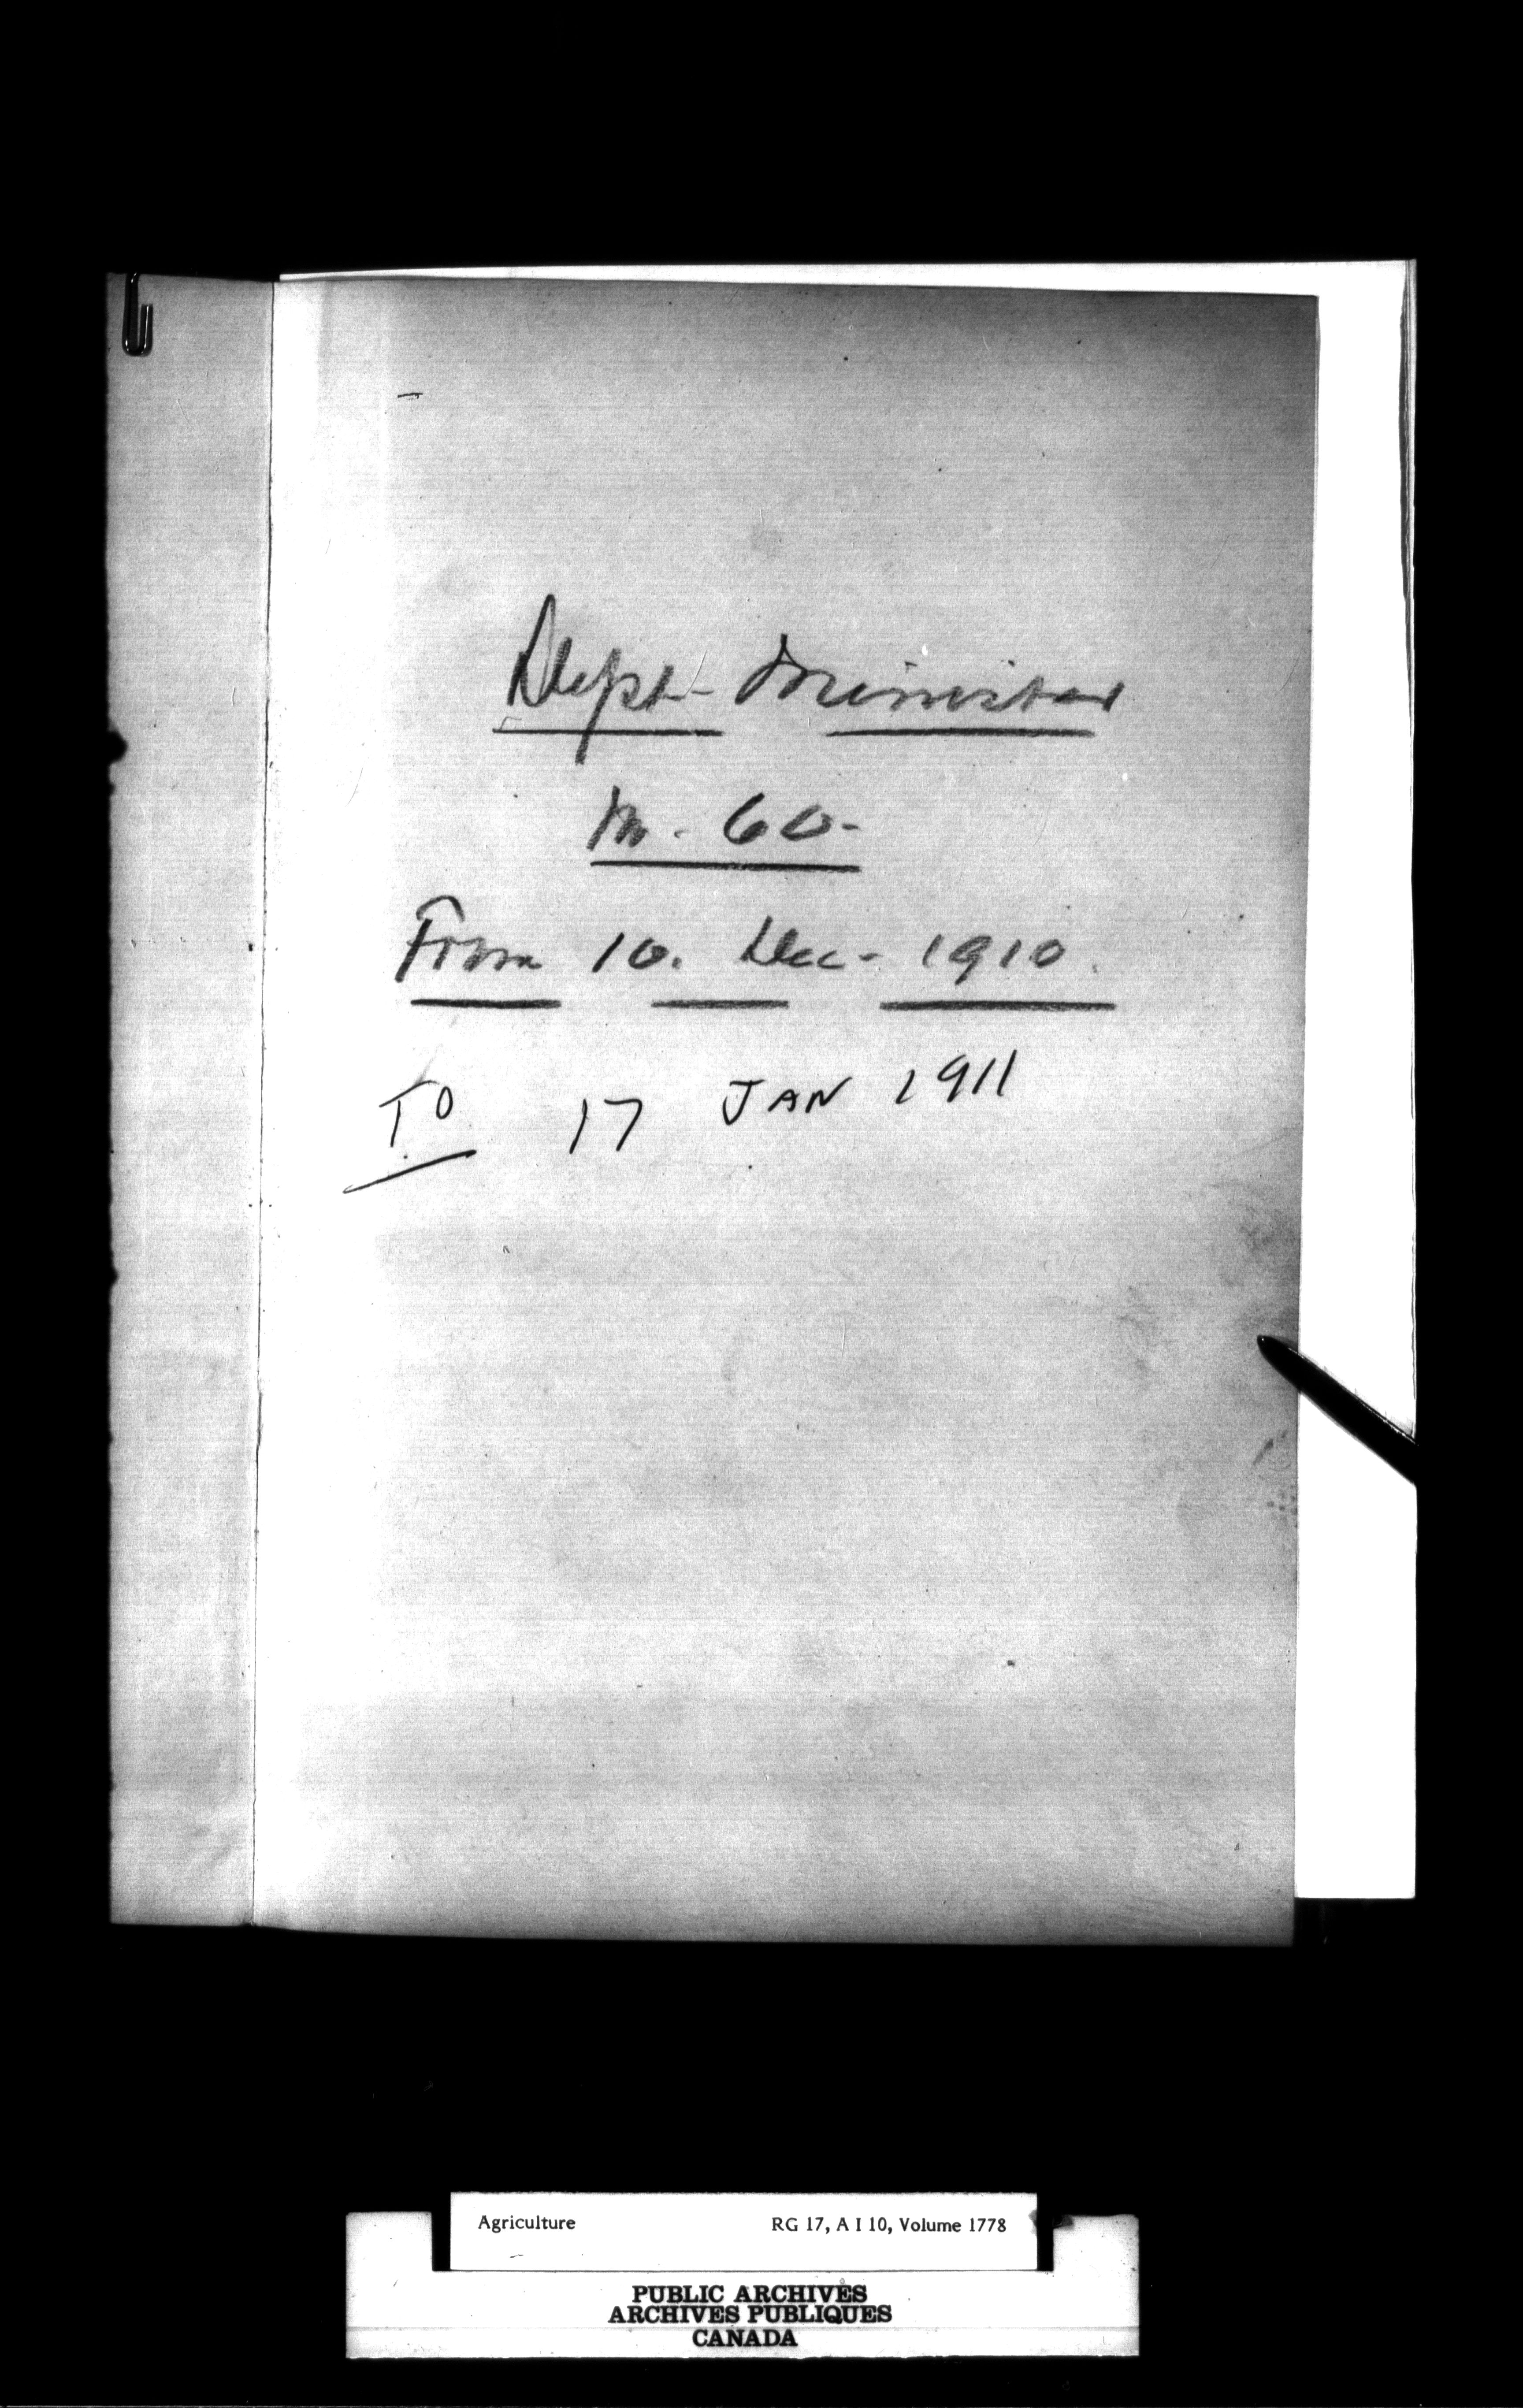 Dept- Minister
M. 60-
From 10. Dec- 1910.
TO 17 JAN 1911
Agriculture RG 17, A I 10, Volume 1778
PUBLIC ARCHIVES
ARCHIVES PUBLIQUES
CANADA